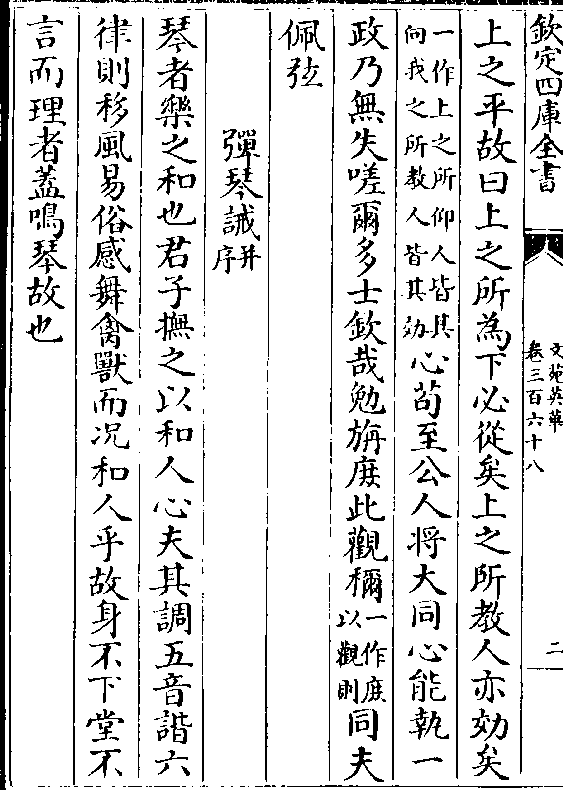 欽定四庫全書
文苑英華
卷三百六十八
二
上之平故曰上之所為下必從矣上之所教人亦効矣
一作上之所仰人皆其
向我之所教人皆其効
心苟至公人將大同心能執一
政乃無失嗟爾多士欽哉勉旃庻此觀穪
一作庻
以觀則
同夫
佩弦
彈琴誡
并
序
琴者樂之和也君子撫之以和人心夫其調五音諧六
律則移風易俗感舞禽獸而況和人乎故身不下堂不
言而理者蓋鳴琴故也